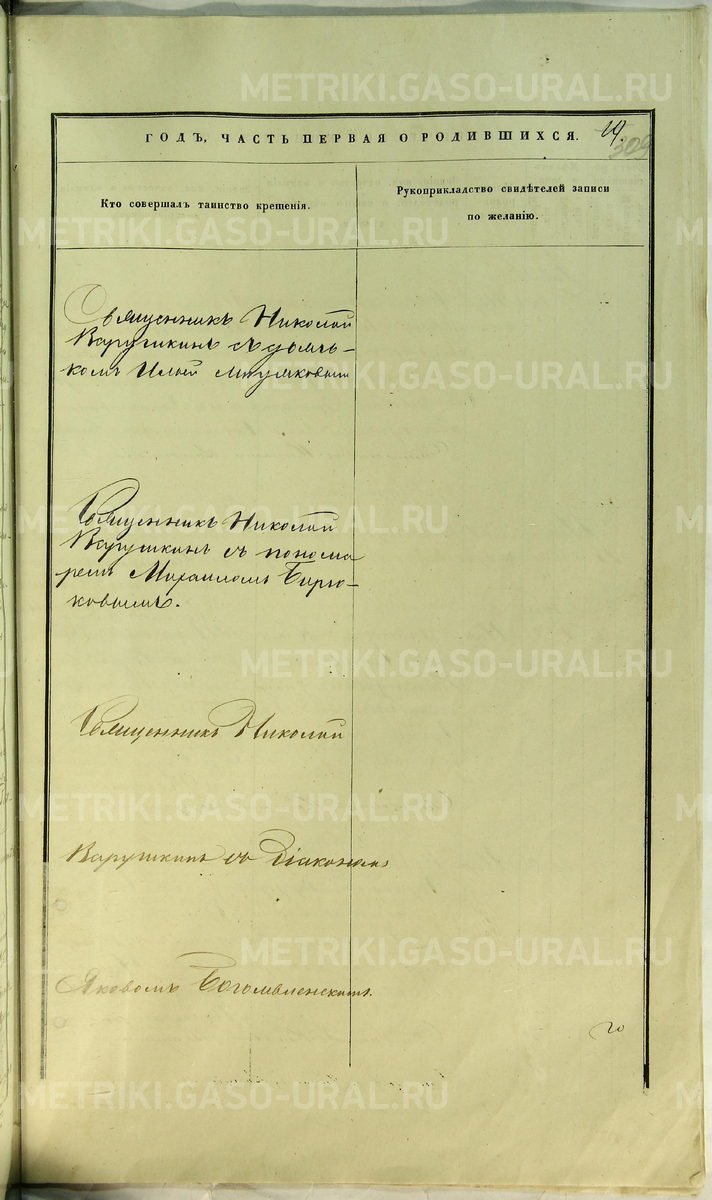 METRIKI.GASO-URAL.RU
ГОДЪ, ЧАСТЬ ПЕРВАЯ О РОДИВШИХСЯ.
19.
309
Кто совершалъ таинство крещенія.
Рукоприкладство свидѣтелей записи
по желанію.
Священникъ Николай
Варушкинъ съ дьяч-
комъ Ильей
Священникъ Николай
Варушкинъ съ понома
ремъ Михаиломъ Бирю-
ковымъ.
Священникъ Николай
Варушкинъ съ Діаконамъ
Яковомъ Богоявленскимъ.